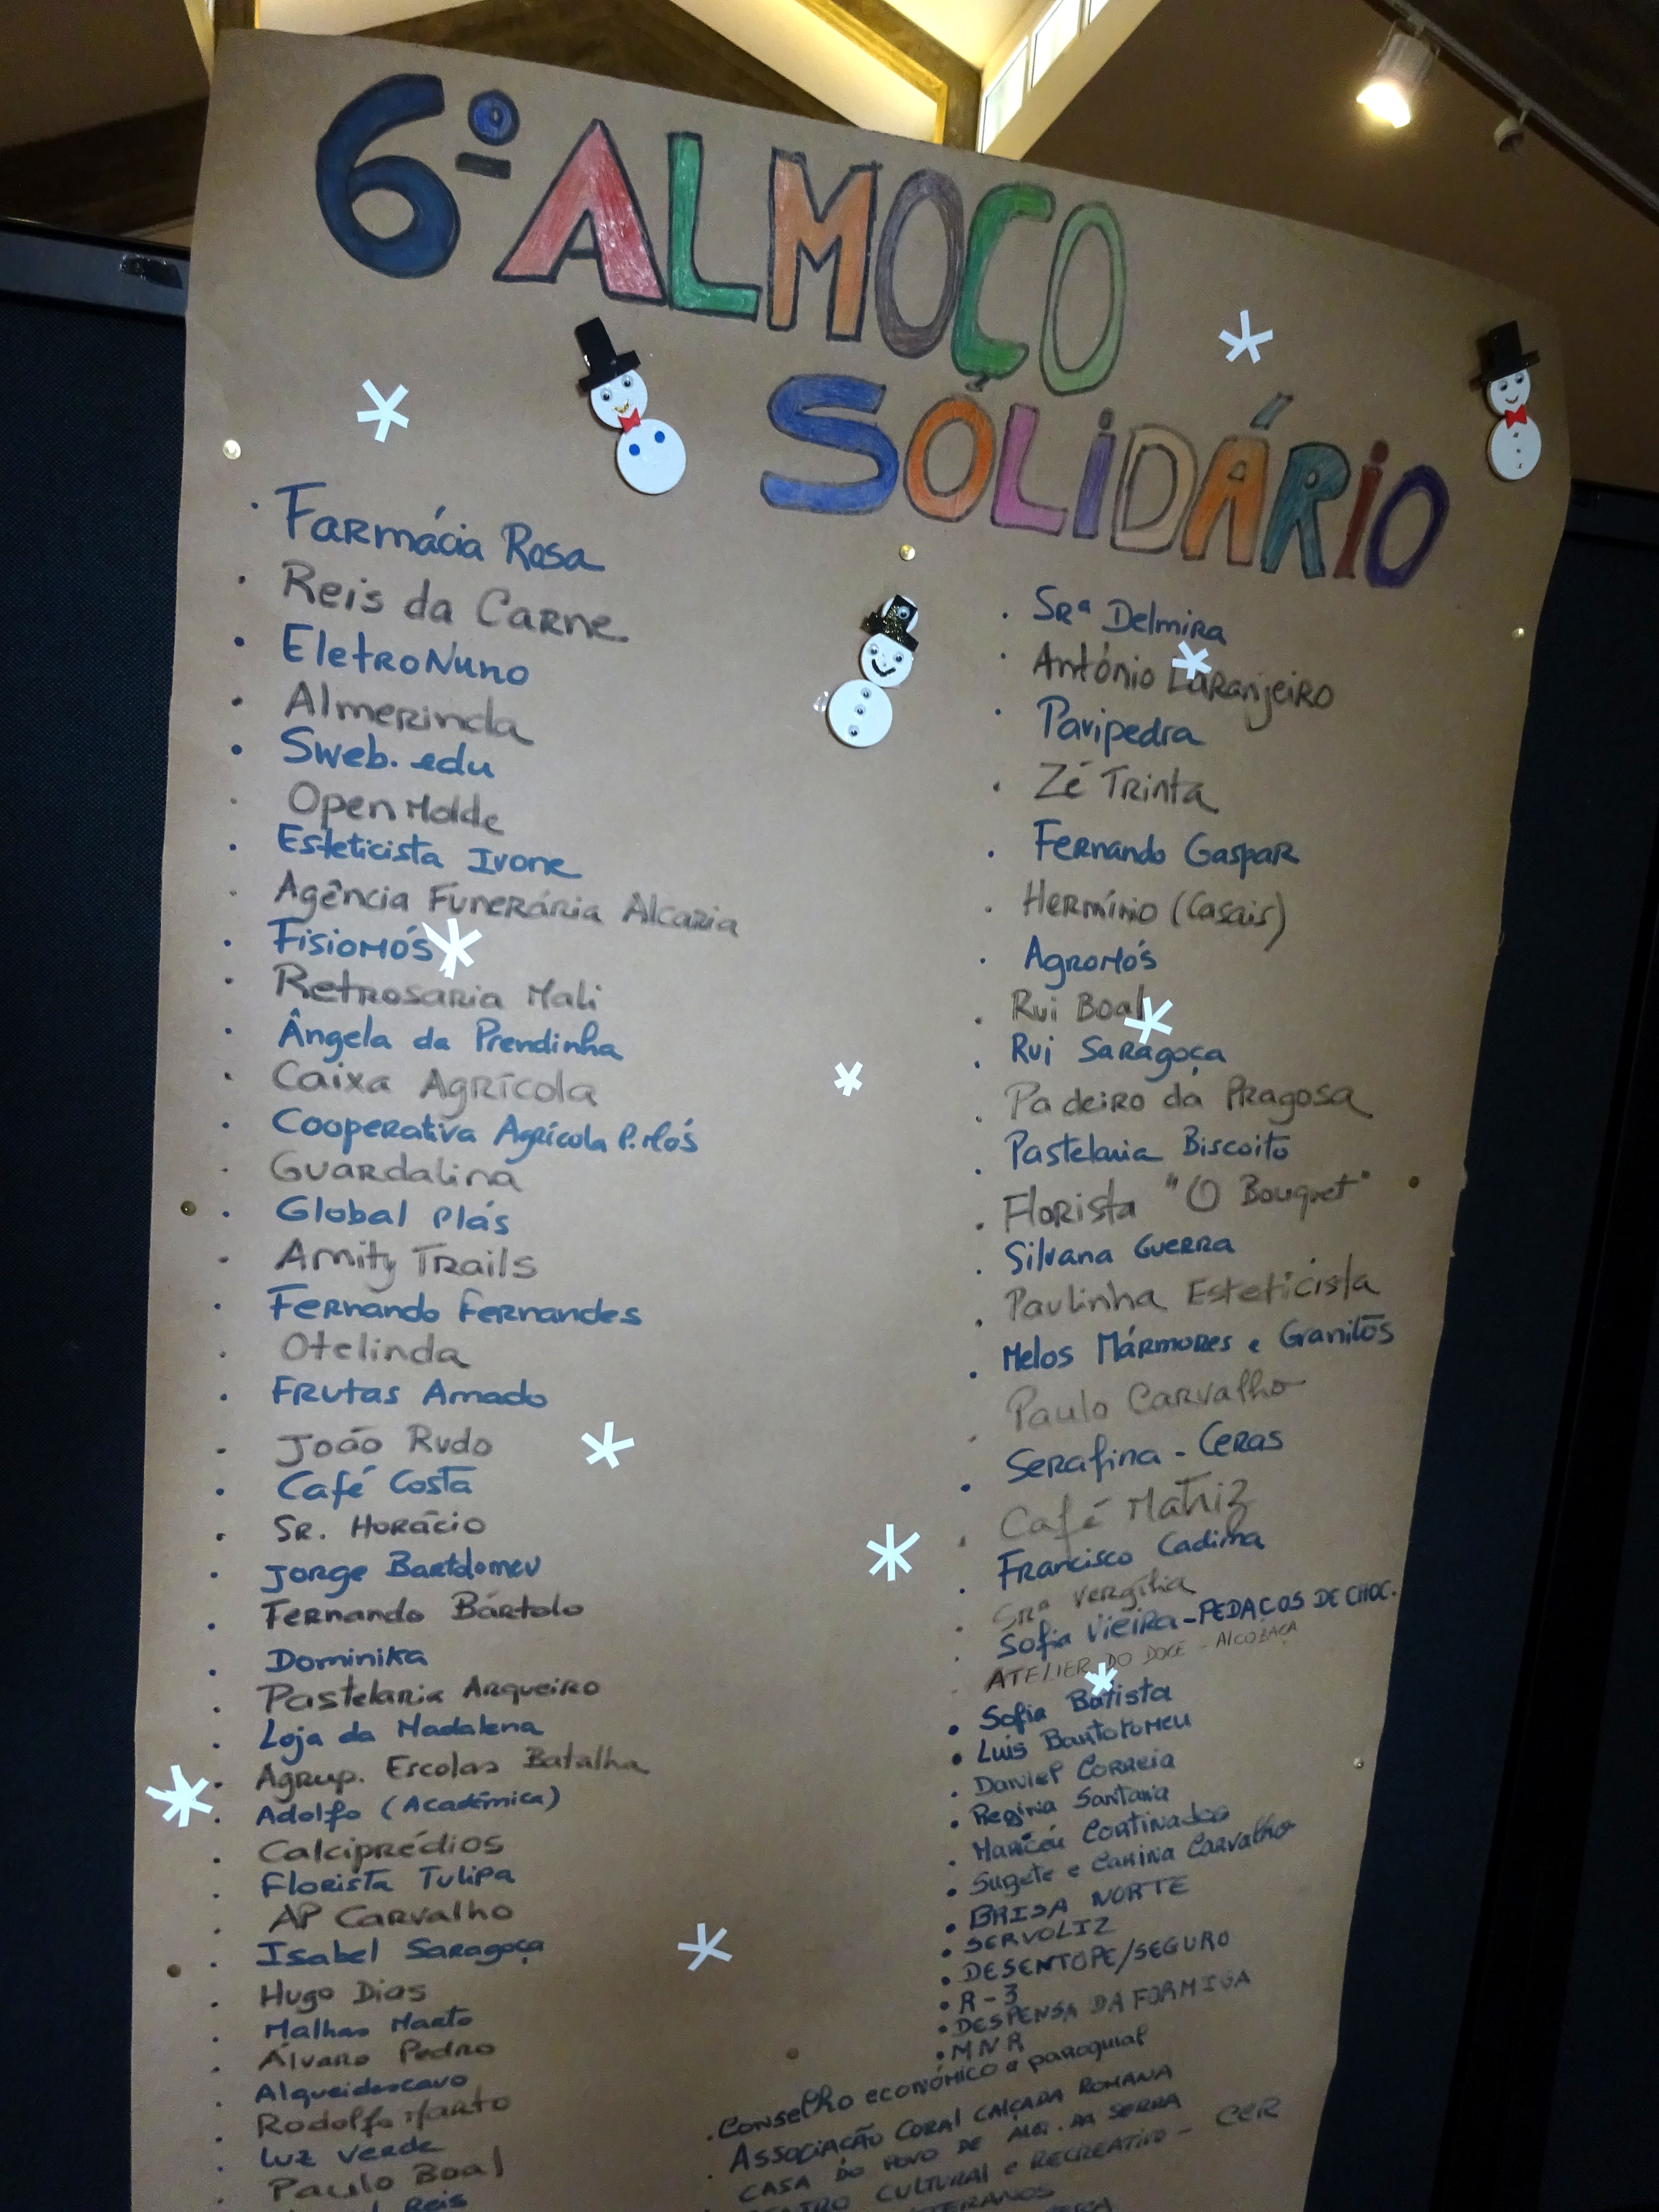 6º ALMOÇO
SOLIDÁRIO
· Farmácia Rosa
· Reis da Carne
· EletroNuno
· Almerinda
· Sweb.edu
· OpenMolde
· Esteticista Ivone
· Agência Funerária Alcaria
· FisioMós
· Retrosaria Mali
· Ângela da Prendinha
· Caixa Agrícola
· Cooperativa Agrícola P. Mós
· Guardalina
· Global Plás
· Amity Trails
· Fernando Fernandes
· Otelinda
· Frutas Amado
· João Rudo
· Café Costa
· Sr. Horácio
· Jorge Bartolomeu
· Fernando Bártolo
· Dominika
· Pastelaria Arqueiro
· Loja da Madalena
· Agrup. Escolas Batalha
· Adolfo (Académica)
· Calciprédios
· Florista Tulipa
· AP Carvalho
· Isabel Saragoça
· Hugo Dias
· Malhas Marto
· Álvaro Pedro
· Alqueidoscavo
· Rodolfo Marto
· Luz Verde
· Paulo Boal
Reis
· Srª Delmira
· António Laranjeiro
· Pavipedra
· Zé Trinta
· Fernando Gaspar
· Hermínio (Casais)
· AgroMós
· Rui Boal
· Rui Saragoça
· Padeiro da Pragosa
· Pastelaria Biscoito
· Florista "O Bouquet"
· Silvana Guerra
· Paulinha Esteticista
· Melos Mármores e Granitos
· Paulo Carvalho
· Serafina - Ceras
· Café Matriz
· Francisco Cadima
· Srª Vergília
· Sofia Vieira - PEDAÇOS DE CHOC.
· ATELIER DO DOCE - ALCOBAÇA
· Sofia Batista
· Luis Bartolomeu
· Daniel Correia
· Regina Santana
· Maricéu Cortinados
· Suzete e Carina Carvalho
· BRISA NORTE
· SERVOLIZ
· DESENTOPE/SEGURO
· R-3
· DESPENSA DA FORMIGA
· MNR
· Conselho económico e paroquial
· Associação Coral CALÇADA ROMANA
CASA DO POVO DE ALQ. DA SERRA
CENTRO CULTURAL e RECREATIVO - CCR